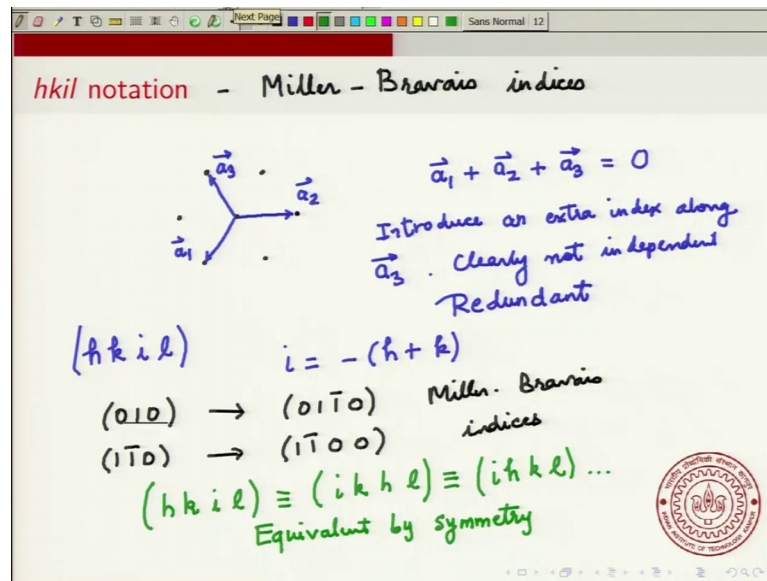 Next Page
Sans Normal 12
hkil notation - Miller - Bravais indices
a⃗₃
a⃗₂
a⃗₁
a⃗₁ + a⃗₂ + a⃗₃ = 0
Introduce an extra index along
a⃗₃ . Clearly not independent
Redundant
(h k i l) i = -(h + k)
(010) → (011̅0) Miller - Bravais
indices
(11̅0) → (11̅00)
(h k i l) ≡ (i k h l) ≡ (i h k l) ...
Equivalent by symmetry
भारतीय प्रौद्योगिकी संस्थान कानपुर
INDIAN INSTITUTE OF TECHNOLOGY KANPUR